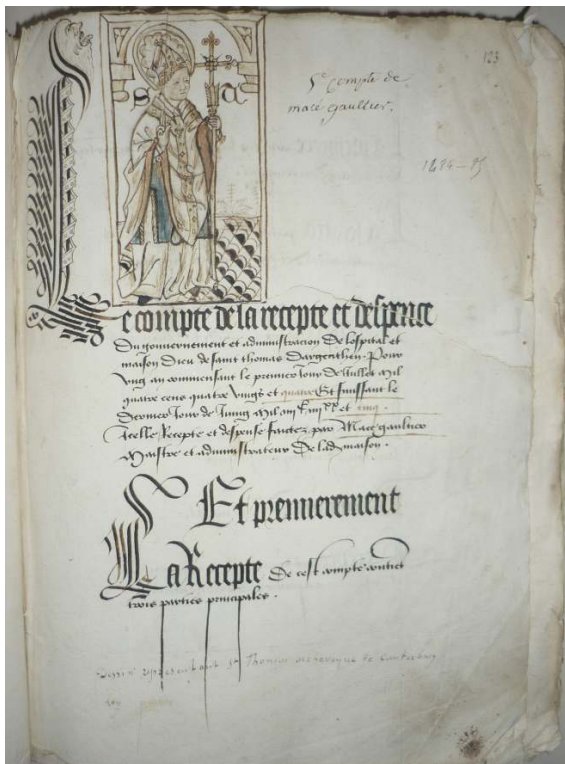 123
5e compte de
macé gaultier.
1484-85
s a
Le compte de la recepte et despence
Du gouvernement et administracion De lospital et
maison Dieu de saint thomas Dargenthen Pour
ung an commensant le premier jour de Jullet mil
quatre cens quatre vings et quatre Et finissant le
Dernier jour de Juing mil iiiic iiiixx et cinq.
Icelle Recepte et despense faictez par Mace gaultier
Maistre et administrateur De lad maison.
Et premierement
La Recepte De cest compte contient
trois parties principales.
Dessin représentant St Thomas archevêque de Cantorbery